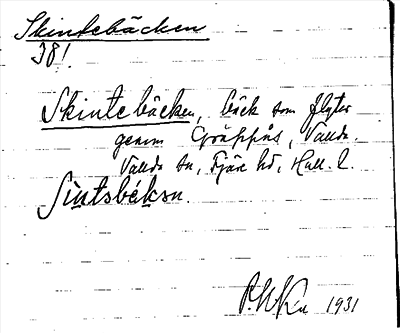 Skintebäcken
381
Skintebäcken, bäck som flyter
genom Gräppås, Vallda.
Vallda sn, Fjäre hd, Hall. l.
Sintsbékən.
1931